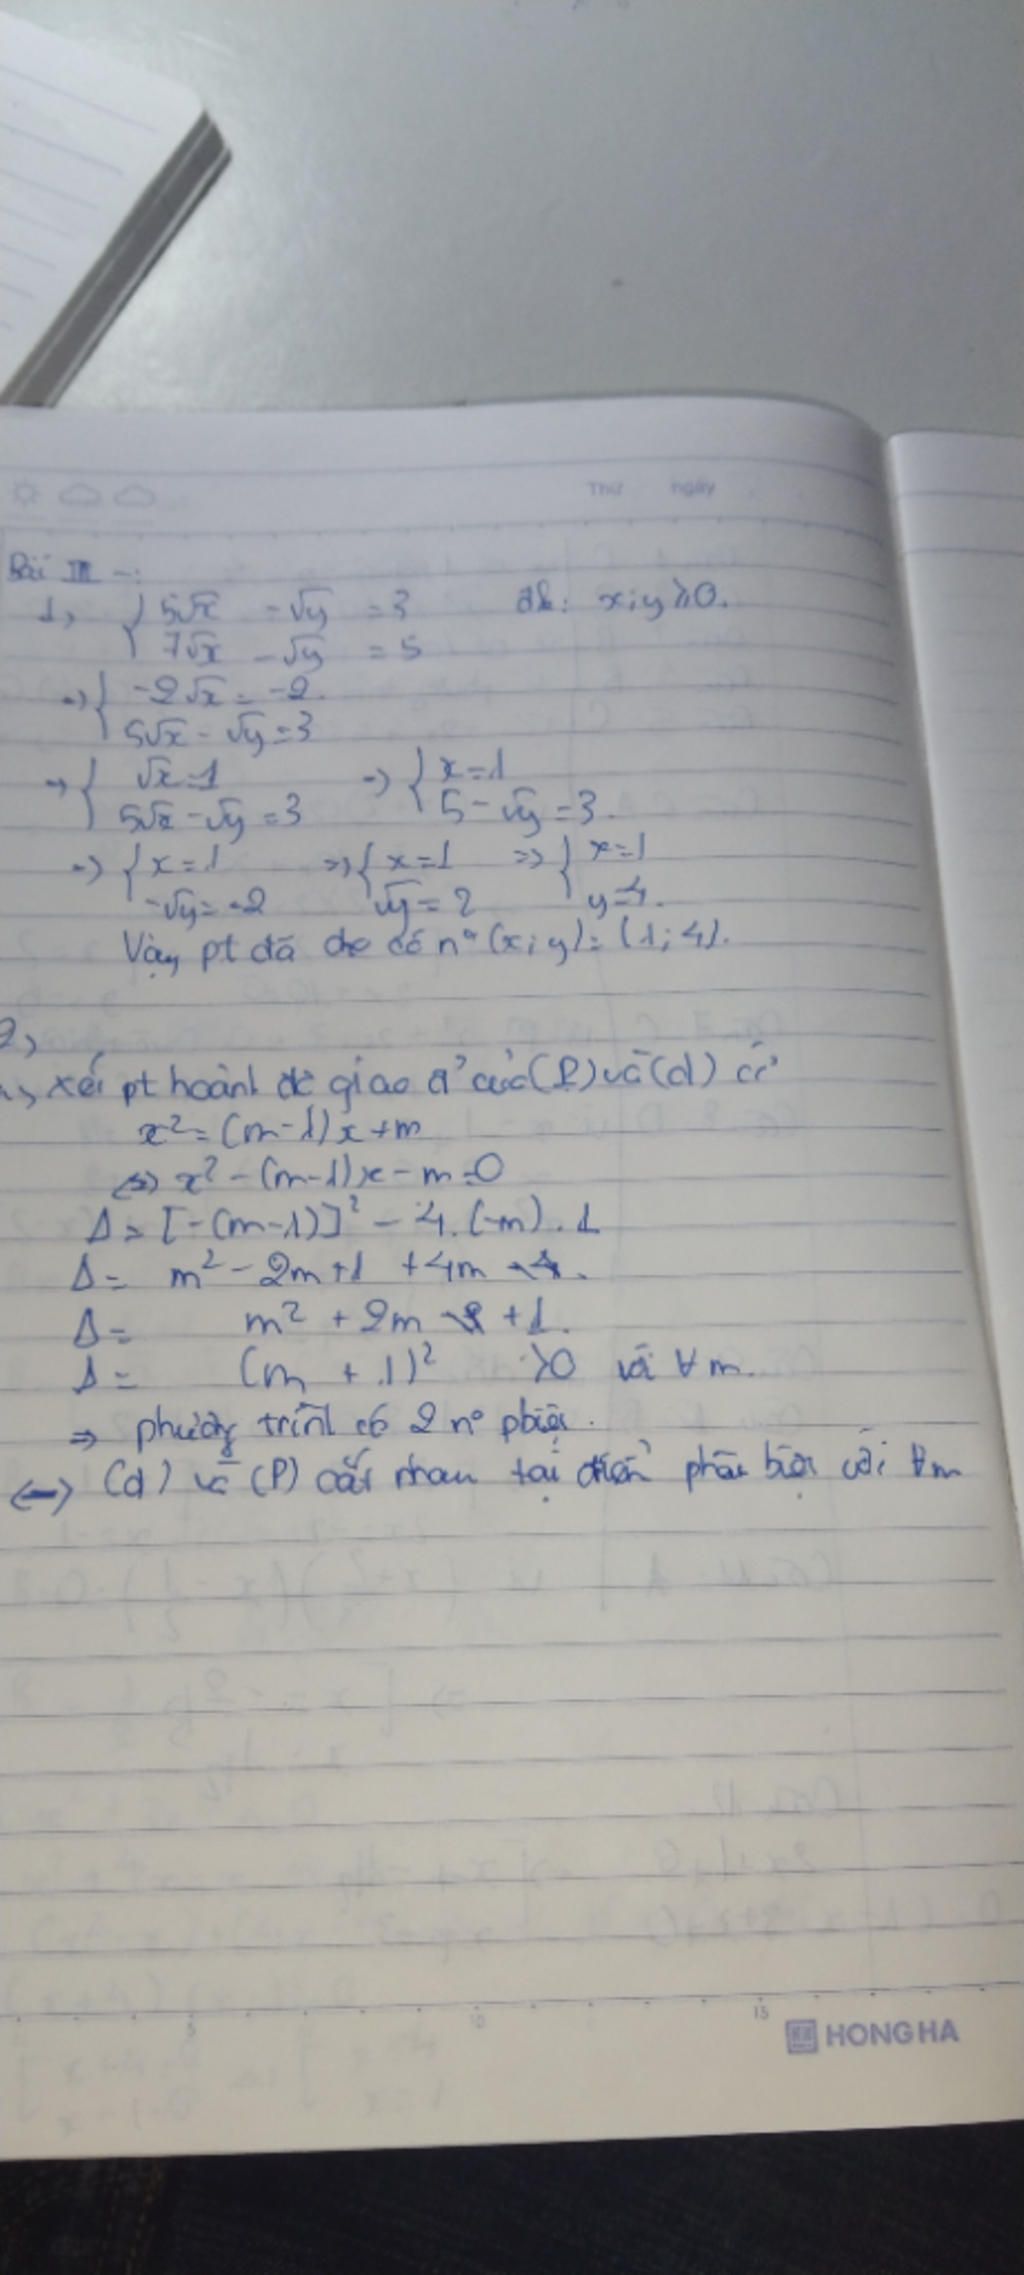 Thứ ngày
Bài III
1, { 5√x - √y = 3 đk: x;y ≥ 0.
7√x - √y = 5
=> { -2√x = -2.
5√x - √y = 3
=> { √x = 1 => { x = 1
5√x - √y = 3 5 - √y = 3.
=> { x = 1 => { x = 1 => { x = 1
-√y = -2 √y = 2 y = 4.
Vậy pt đã cho có nº (x;y) = (1;4).
2,
a, xét pt hoành độ giao đ' của (P) và (d) có
x² = (m-1)x + m
<=> x² - (m-1)x - m = 0
Δ = [-(m-1)]² - 4.(-m).1
Δ = m² - 2m + 1 + 4m
Δ = m² + 2m + 1.
Δ = (m + 1)² ≥0 với ∀m.
=> phương trình có 2 nº pbiệt.
<=> (d) và (P) cắt nhau tại điểm phân biệt với ∀m
5 10 15
HONG HA